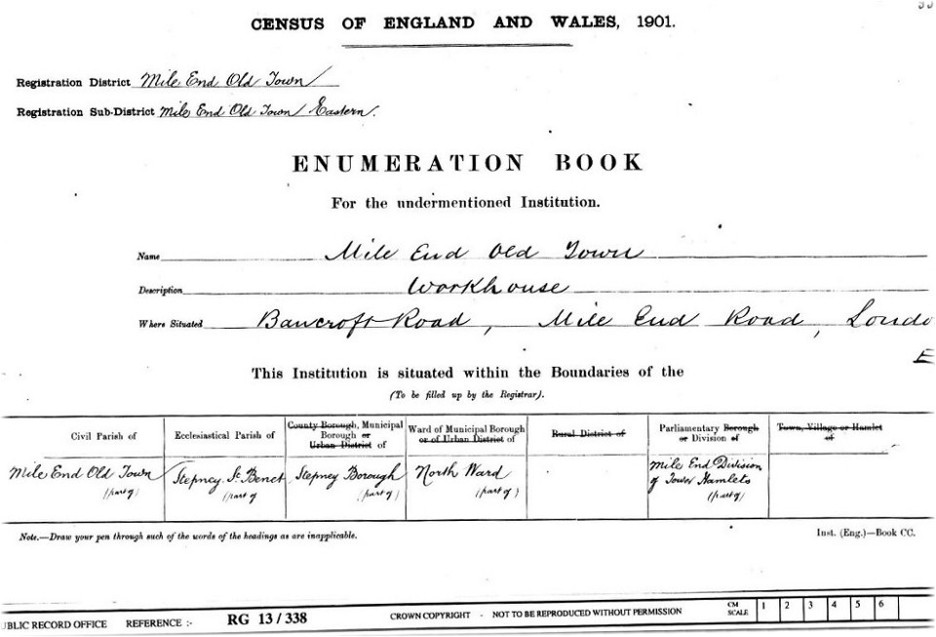 CENSUS OF ENGLAND AND WALES, 1901.
Registration District Mile End Old Town
Registration Sub-District Mile End Old Town Eastern.
ENUMERATION BOOK
For the undermentioned Institution.
Name Mile End Old Town
Description Workhouse
Where Situated Bancroft Road, Mile End Road, Londo
E
This Institution is situated within the Boundaries of the
(To be filled up by the Registrar).
Civil Parish of
Ecclesiastical Parish of
County Borough, Municipal
Borough or
Urban District of
Ward of Municipal Borough
or of Urban District of
Rural District of
Parliamentary Borough
or Division of
Town, Village or Hamlet
of
Mile End Old Town
(part of)
Stepney St. Benet
(part of
Stepney Borough
(part of)
North Ward
(part of)
Mile End Division
of Tower Hamlets
(part of)
Note.—Draw your pen through such of the words of the headings as are inapplicable.
Inst. (Eng.)—Book CC.
UBLIC RECORD OFFICE REFERENCE :- RG 13/338 CROWN COPYRIGHT - NOT TO BE REPRODUCED WITHOUT PERMISSION CM SCALE 1 2 3 4 5 6